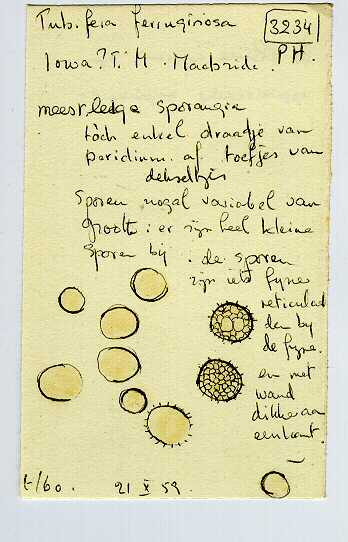 Tubifera ferruginosa
3234
Iowa? T. H. Macbride.
PH.
meest ledge sporangia
tòch enkel draadje van
peridium af toefjes van
dekseltjes
Sporen nogal variabel van
grootte: er zijn heel kleine
sporen bij. de sporen
zijn iets fyner
reticulaat
dan bij
de fyne.
en met
wand
dikker aan
een kant.
t/60.
21 X 59.